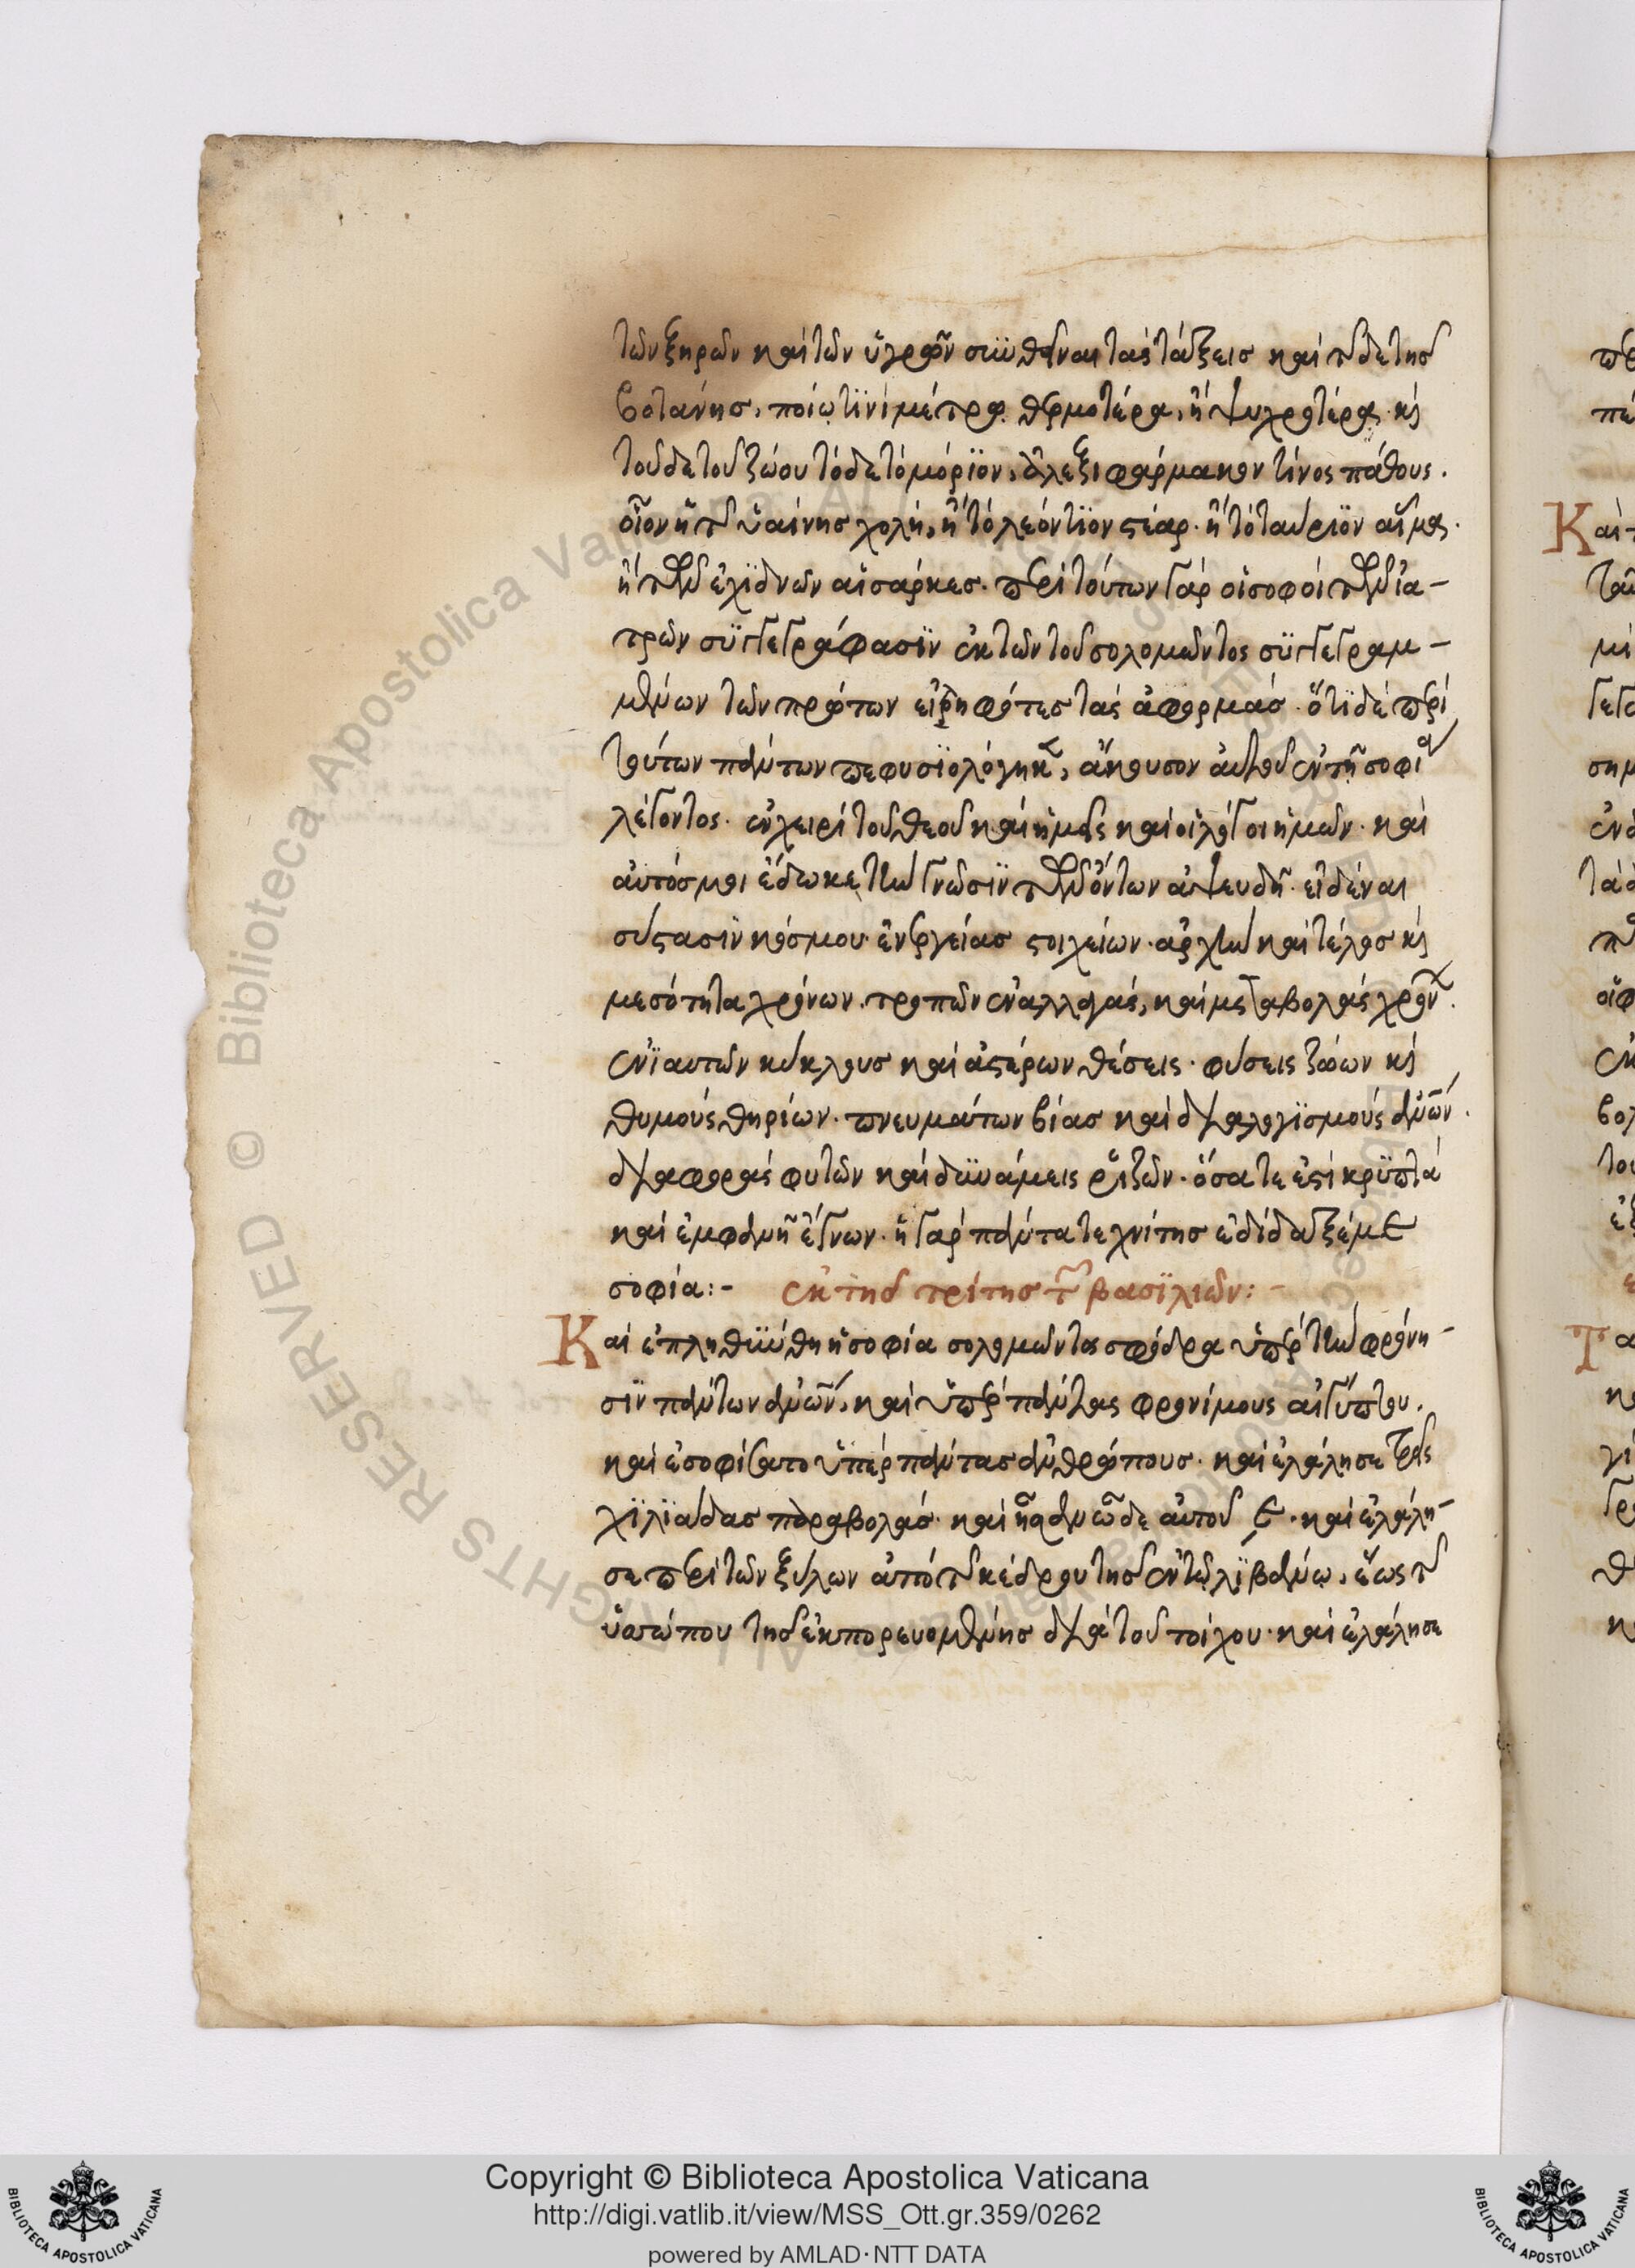 τῶν ξηρῶν καὶ τῶν ὑγρῶν συντεθῆναι τὰς τάξεις καὶ τῆσδε τῆς
βοτάνης, ποίῳ τινὶ μέτρῳ θερμοτέρα, ἢ ψυχροτέρα καὶ
τοῦδε τοῦ ζώου τόδε τὸ μόριον, ἀλεξιφάρμακον τίνος πάθους.
οἷον ἢ τῆς ὑαίνης χολή, ἢ τὸ λεόντιον στέαρ. ἢ τὸ ταύριον αἷμα.
ἢ τῶν ἐχιδνῶν αἱ σάρκες. περὶ τούτων γὰρ οἱ σοφοὶ τῶν ἰα-
τρῶν συγγεγράφασιν ἐκ τῶν τοῦ σολομῶντος συγγεγραμ-
μένων τῶν πρώτων εἰληφότες τὰς ἀφορμάς. ὅτι δὲ περὶ
τούτων πάντων πεφυσιολόγηκε, ἄκουσον αὐτοῦ ἐν τῇ σοφία
λέγοντος. ἐν χειρὶ τοῦ θεοῦ καὶ ἡμεῖς καὶ οἱ λόγοι ἡμῶν. καὶ
αὐτός μοι ἔδωκε τὴν γνῶσιν τῶν ὄντων ἀψευδῆ. εἰδέναι
σύστασιν κόσμου. ἐνεργείας στοιχείων. ἀρχὴν καὶ τέλος καὶ
μεσότητα χρόνων. τροπῶν ἐναλλαγάς, καὶ μεταβολὰς χρόνων.
ἐνιαυτῶν κύκλους καὶ ἀστέρων θέσεις. φύσεις ζώων καὶ
θυμοὺς θηρίων. πνευμάτων βίας καὶ διαλογισμοὺς ἀνῶν.
διαφορὰς φυτῶν καὶ δυνάμεις ῥιζῶν. ὅσα τε ἐστὶ κρυπτὰ
καὶ ἐμφανῆ ἔγνων. ἡ γὰρ πάντα τεχνίτης ἐδίδαξέ με
σοφία:- ἐκ τῆς τρίτης τῶν βασιλειῶν:-
Καὶ ἐπληθύνθη ἡ σοφία σολομῶντος σφόδρα ὑπὲρ τὴν φρόνη-
σιν πάντων ἀνῶν, καὶ ὑπὲρ πάντας φρονίμους αἰγύπτου.
καὶ ἐσοφίσατο ὑπὲρ πάντας ἀνθρώπους. καὶ ἐλάλησε τρεῖς
χιλιάδας παραβολάς. καὶ ἦσαν ὠδαὶ αὐτοῦ ͵ε. καὶ ἐλάλη-
σε περὶ τῶν ξύλων ἀπὸ τῆς κέδρου τῆς ἐν τῷ λιβάνῳ, ἕως τῆς
ὑσσώπου τῆς ἐκπορευομένης διὰ τοῦ τοίχου. καὶ ἐλάλησε
Copyright © Biblioteca Apostolica Vaticana
http://digi.vatlib.it/view/MSS_Ott.gr.359/0262
powered by AMLAD·NTT DATA